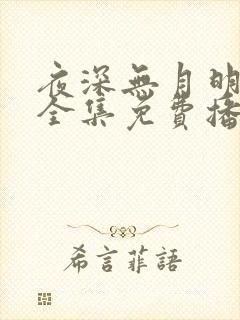 夜深無月明
全集免費播
希言菲語